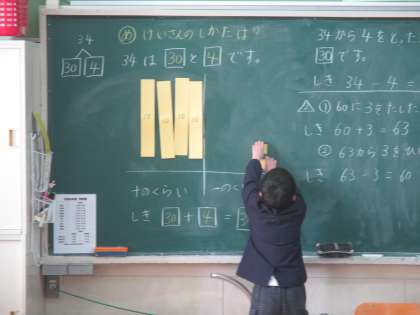 34
30 4
め けいさんのしかたは?
34は30と4です。
十のくらい 一のく
しき 30 + 4 = 3
34から4をとった
30です。
しき 34 - 4 =
① 60に3をたした
しき 60 + 3 = 63
② 63から3をひ
しき 63 - 3 = 60